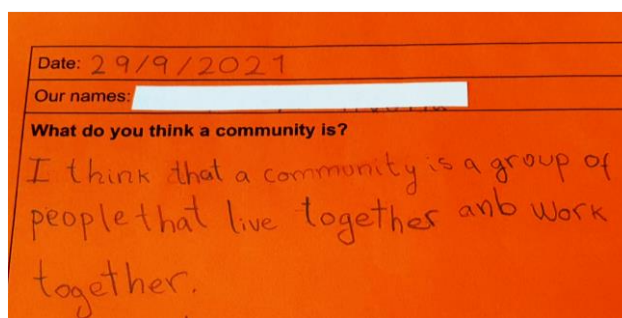 Date: 29/9/2021
Our names:
What do you think a community is?
I think that a community is a group of
people that live together anb work
together.